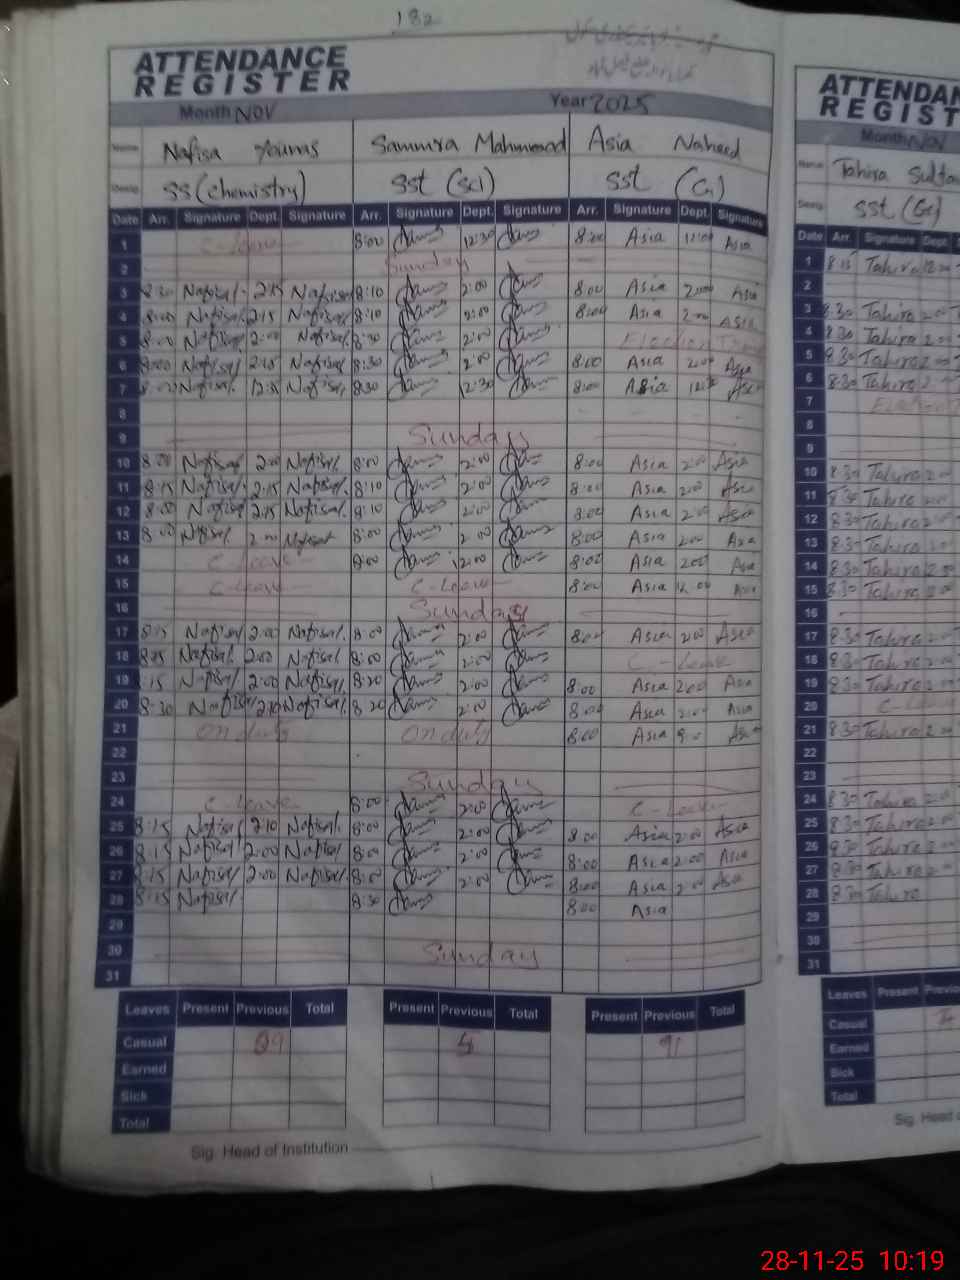 182
ATTENDANCE
REGISTER
Month NOV Year 2025
Name Nafisa Younas Sammra Mahmmod Asia Naheed
Desig: SS (chemistry) SSt (Sci) SSt (G)
Date Arr. Signature Dept. Signature Arr. Signature Dept. Signature Arr. Signature Dept. Signature
1 C-Leave 8:00 12:30 8:00 Asia 12:00 Asia
2 Sunday
3 8:30 Nafisa 2:15 Nafisa 8:10 2:00 8:00 Asia 2:00 Asia
4 8:00 Nafisa 2:15 Nafisa 8:10 2:00 8:00 Asia 2:00 Asia
5 8:00 Nafisa 2:00 Nafisa 8:30 2:00 Election
6 8:00 Nafisa 2:15 Nafisa 8:30 2:00 8:00 Asia 2:00 Asia
7 8:00 Nafisa 12:30 Nafisa 8:30 12:30 8:00 Asia Asia
8
9 Sunday
10 8:00 Nafisa 2:00 Nafisa 8:00 2:00 8:00 Asia 2:00 Asia
11 8:15 Nafisa 2:15 Nafisa 8:10 2:00 8:00 Asia 2:00 Asia
12 8:00 Nafisa 2:15 Nafisa 8:10 2:00 8:00 Asia 2:00 Asia
13 8:00 Nafisa 2:00 Nafisa 8:00 2:00 8:00 Asia 2:00 Asia
14 C-Leave 8:00 12:00 8:00 Asia 2:00 Asia
15 C-Leave C-Leave 8:00 Asia 12:00 Asia
16 Sunday
17 8:15 Nafisa 2:00 Nafisa 8:00 2:00 8:00 Asia 2:00 Asia
18 8:15 Nafisa 2:00 Nafisa 8:00 2:00 C-Leave
19 :15 Nafisa 2:00 Nafisa 8:20 2:00 8:00 Asia 2:00 Asia
20 8:30 Nafisa 2:10 Nafisa 8:20 2:00 8:00 Asia 2:00 Asia
21 On duty On duty 8:00 Asia Asia
22
23 Sunday
24 C-Leave 8:00 2:00 C-Leave
25 8:15 Nafisa 2:10 Nafisa 8:00 2:00 8:00 Asia 2:00 Asia
26 8:15 Nafisa 2:00 Nafisa 8:00 2:00 8:00 Asia 2:00 Asia
27 8:15 Nafisa 2:00 Nafisa 8:00 2:00 8:00 Asia 2:00 Asia
28 8:15 Nafisa 8:30 8:00 Asia
29
30 Sunday
31
Leaves Present Previous Total Present Previous Total Present Previous Total
Casual 09 5 91
Earned
Sick
Total
Sig. Head of Institution
ATTENDAN
REGIST
Month NOV
Name Tahira Sulta
Desig: SSt (G)
Date Arr. Signature Dept.
1 8:15 Tahira 12:00
2
3 8:30 Tahira 2:00
4 8:30 Tahira 2:00
5 8:30 Tahira 2:00
6 8:30 Tahira 2:00
7
8
9
10 8:30 Tahira 2:00
11 8:30 Tahira 2:00
12 8:30 Tahira 2:00
13 8:30 Tahira 2:00
14 8:30 Tahira 2:00
15 8:30 Tahira
16
17 8:30 Tahira 2:00
18 8:30 Tahira 2:00
19 8:30 Tahira 2:00
20 C-Leave
21 8:30 Tahira 2:00
22
23
24 8:30 Tahira 2:00
25 8:30 Tahira 2:00
26 8:30 Tahira 2:00
27 8:30 Tahira 2:00
28 8:30 Tahira
29
30
31
Leaves Present Previo
Casual
Earned
Sick
Total
Sig. Head
28-11-25 10:19